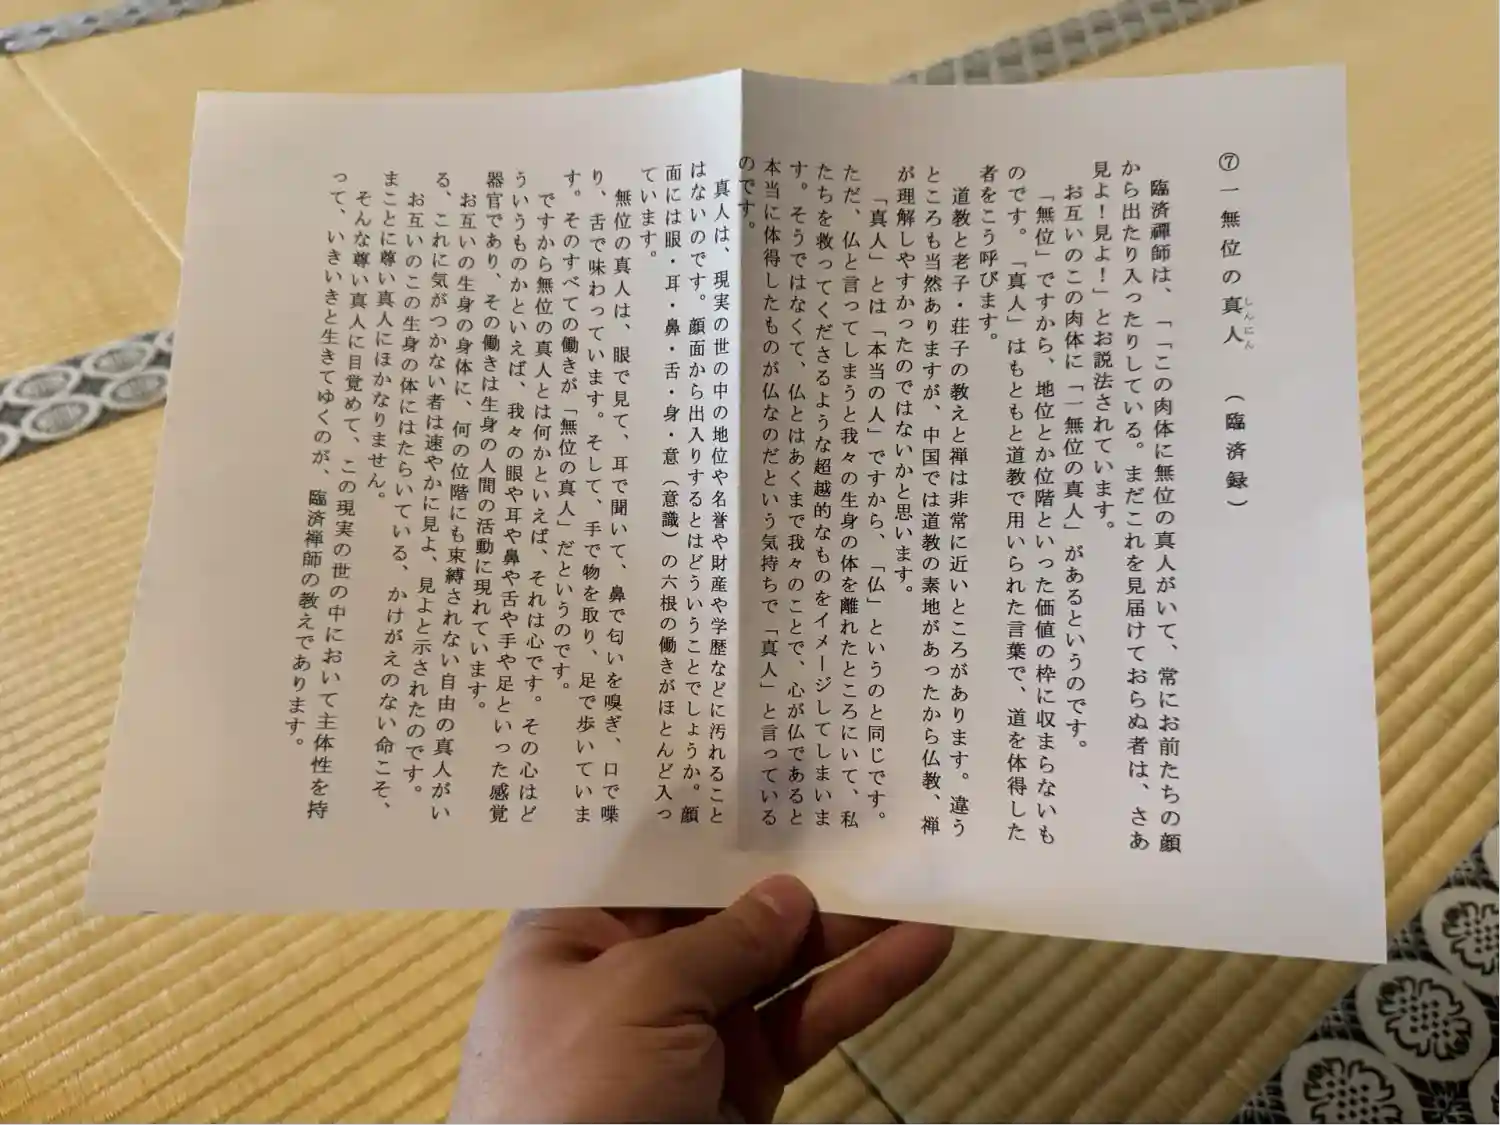 ⑦一無位の真人 （臨済録）
しんにん
臨済禅師は、「「この肉体に無位の真人がいて、常にお前たちの顔
から出たり入ったりしている。まだこれを見届けておらぬ者は、さあ
見よ！見よ！」とお説法されています。
お互いのこの肉体に「一無位の真人」があるというのです。
「無位」ですから、地位とか位階といった価値の枠に収まらないも
のです。「真人」はもともと道教で用いられた言葉で、道を体得した
者をこう呼びます。
道教と老子・荘子の教えと禅は非常に近いところがあります。違う
ところも当然ありますが、中国では道教の素地があったから仏教、禅
が理解しやすかったのではないかと思います。
「真人」とは「本当の人」ですから、「仏」というのと同じです。
ただ、仏と言ってしまうと我々の生身の体を離れたところにいて、私
たちを救ってくださるような超越的なものをイメージしてしまいま
す。そうではなくて、仏とはあくまで我々のことで、心が仏であると
本当に体得したものが仏なのだという気持ちで「真人」と言っている
のです。
真人は、現実の世の中の地位や名誉や財産や学歴などに汚れること
はないのです。顔面から出入りするとはどういうことでしょうか。顔
面には眼・耳・鼻・舌・身・意（意識）の六根の働きがほとんど入っ
ています。
無位の真人は、眼で見て、耳で聞いて、鼻で匂いを嗅ぎ、口で喋
り、舌で味わっています。そして、手で物を取り、足で歩いていま
す。そのすべての働きが「無位の真人」だというのです。
ですから無位の真人とは何かといえば、それは心です。その心はど
ういうものかといえば、我々の眼や耳や鼻や舌や手や足といった感覚
器官であり、その働きは生身の人間の活動に現れています。
お互いの生身の身体に、何の位階にも束縛されない自由の真人がい
る、これに気がつかない者は速やかに見よ、見よと示されたのです。
お互いのこの生身の体にはたらいている、かけがえのない命こそ、
まことに尊い真人にほかなりません。
そんな尊い真人に目覚めて、この現実の世の中において主体性を持
って、いきいきと生きてゆくのが、臨済禅師の教えであります。